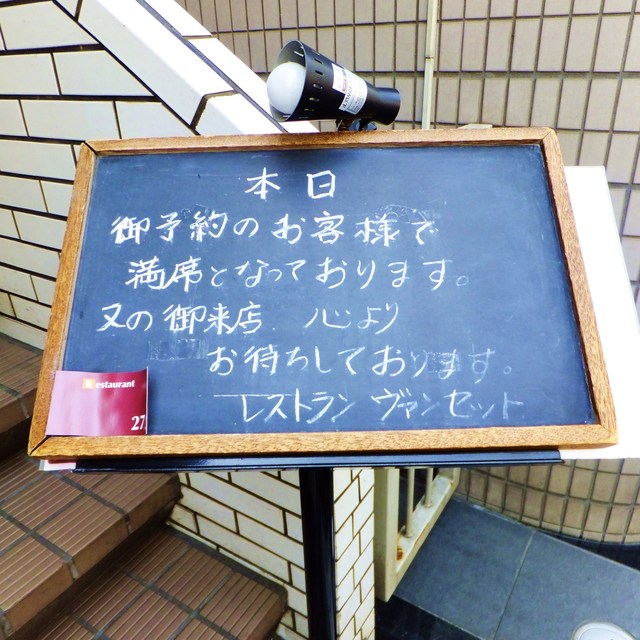 本日
御予約のお客様で
満席となっております。
又の御来店 心より
お待ちしております。
レストラン ヴァンセット
Restaurant
27